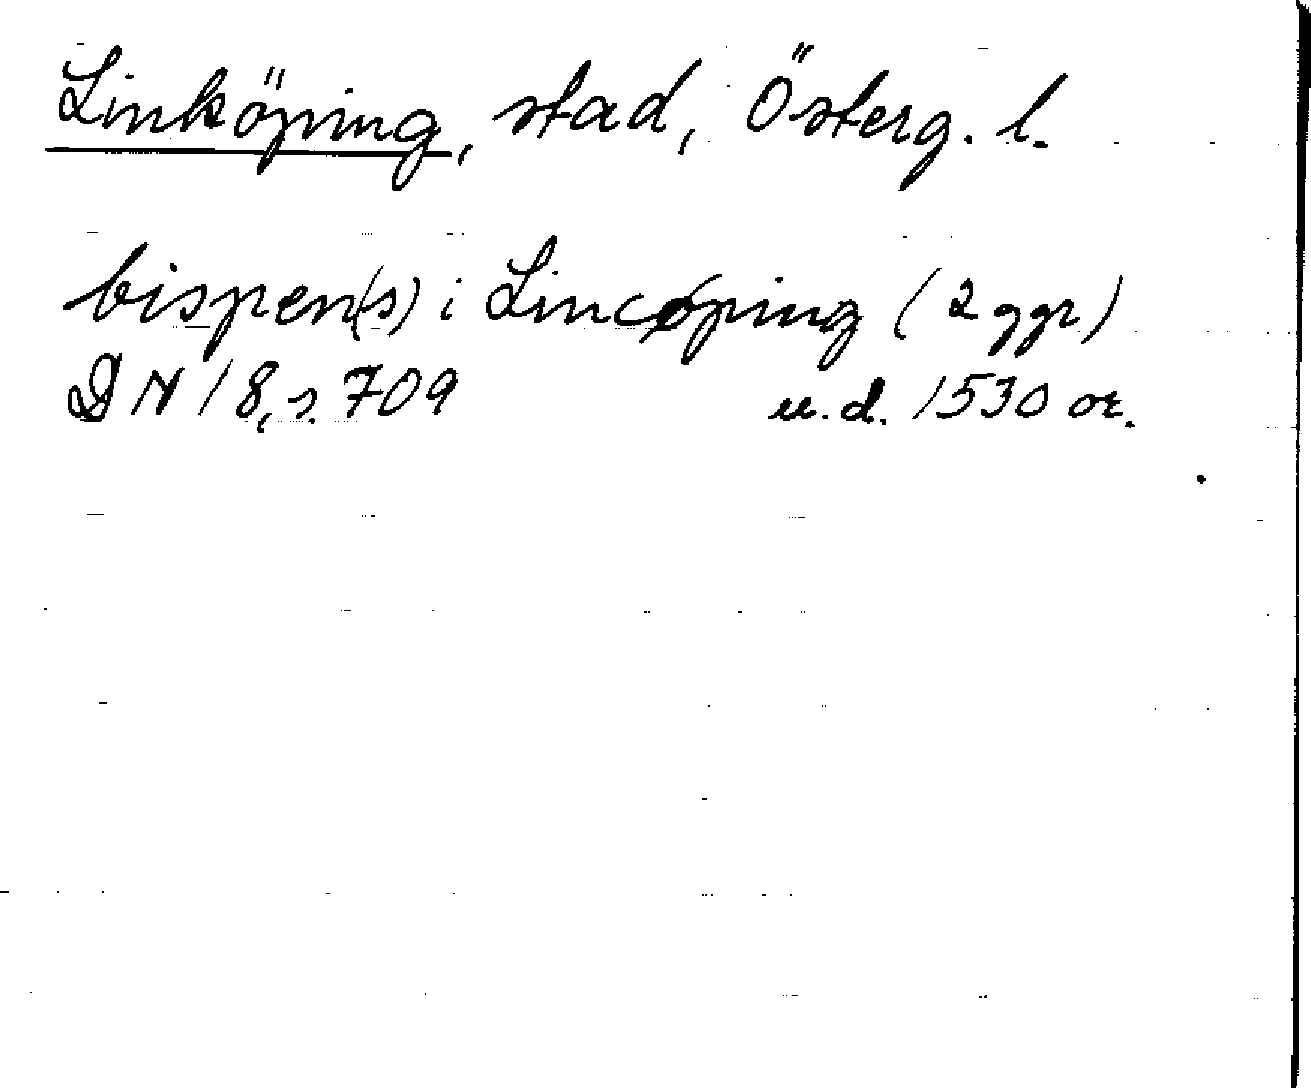 Linköping, stad, Österg. l.
bispen(s) i Lincøping (2 ggr)
DN 18, s. 709 u.d. 1530 or.